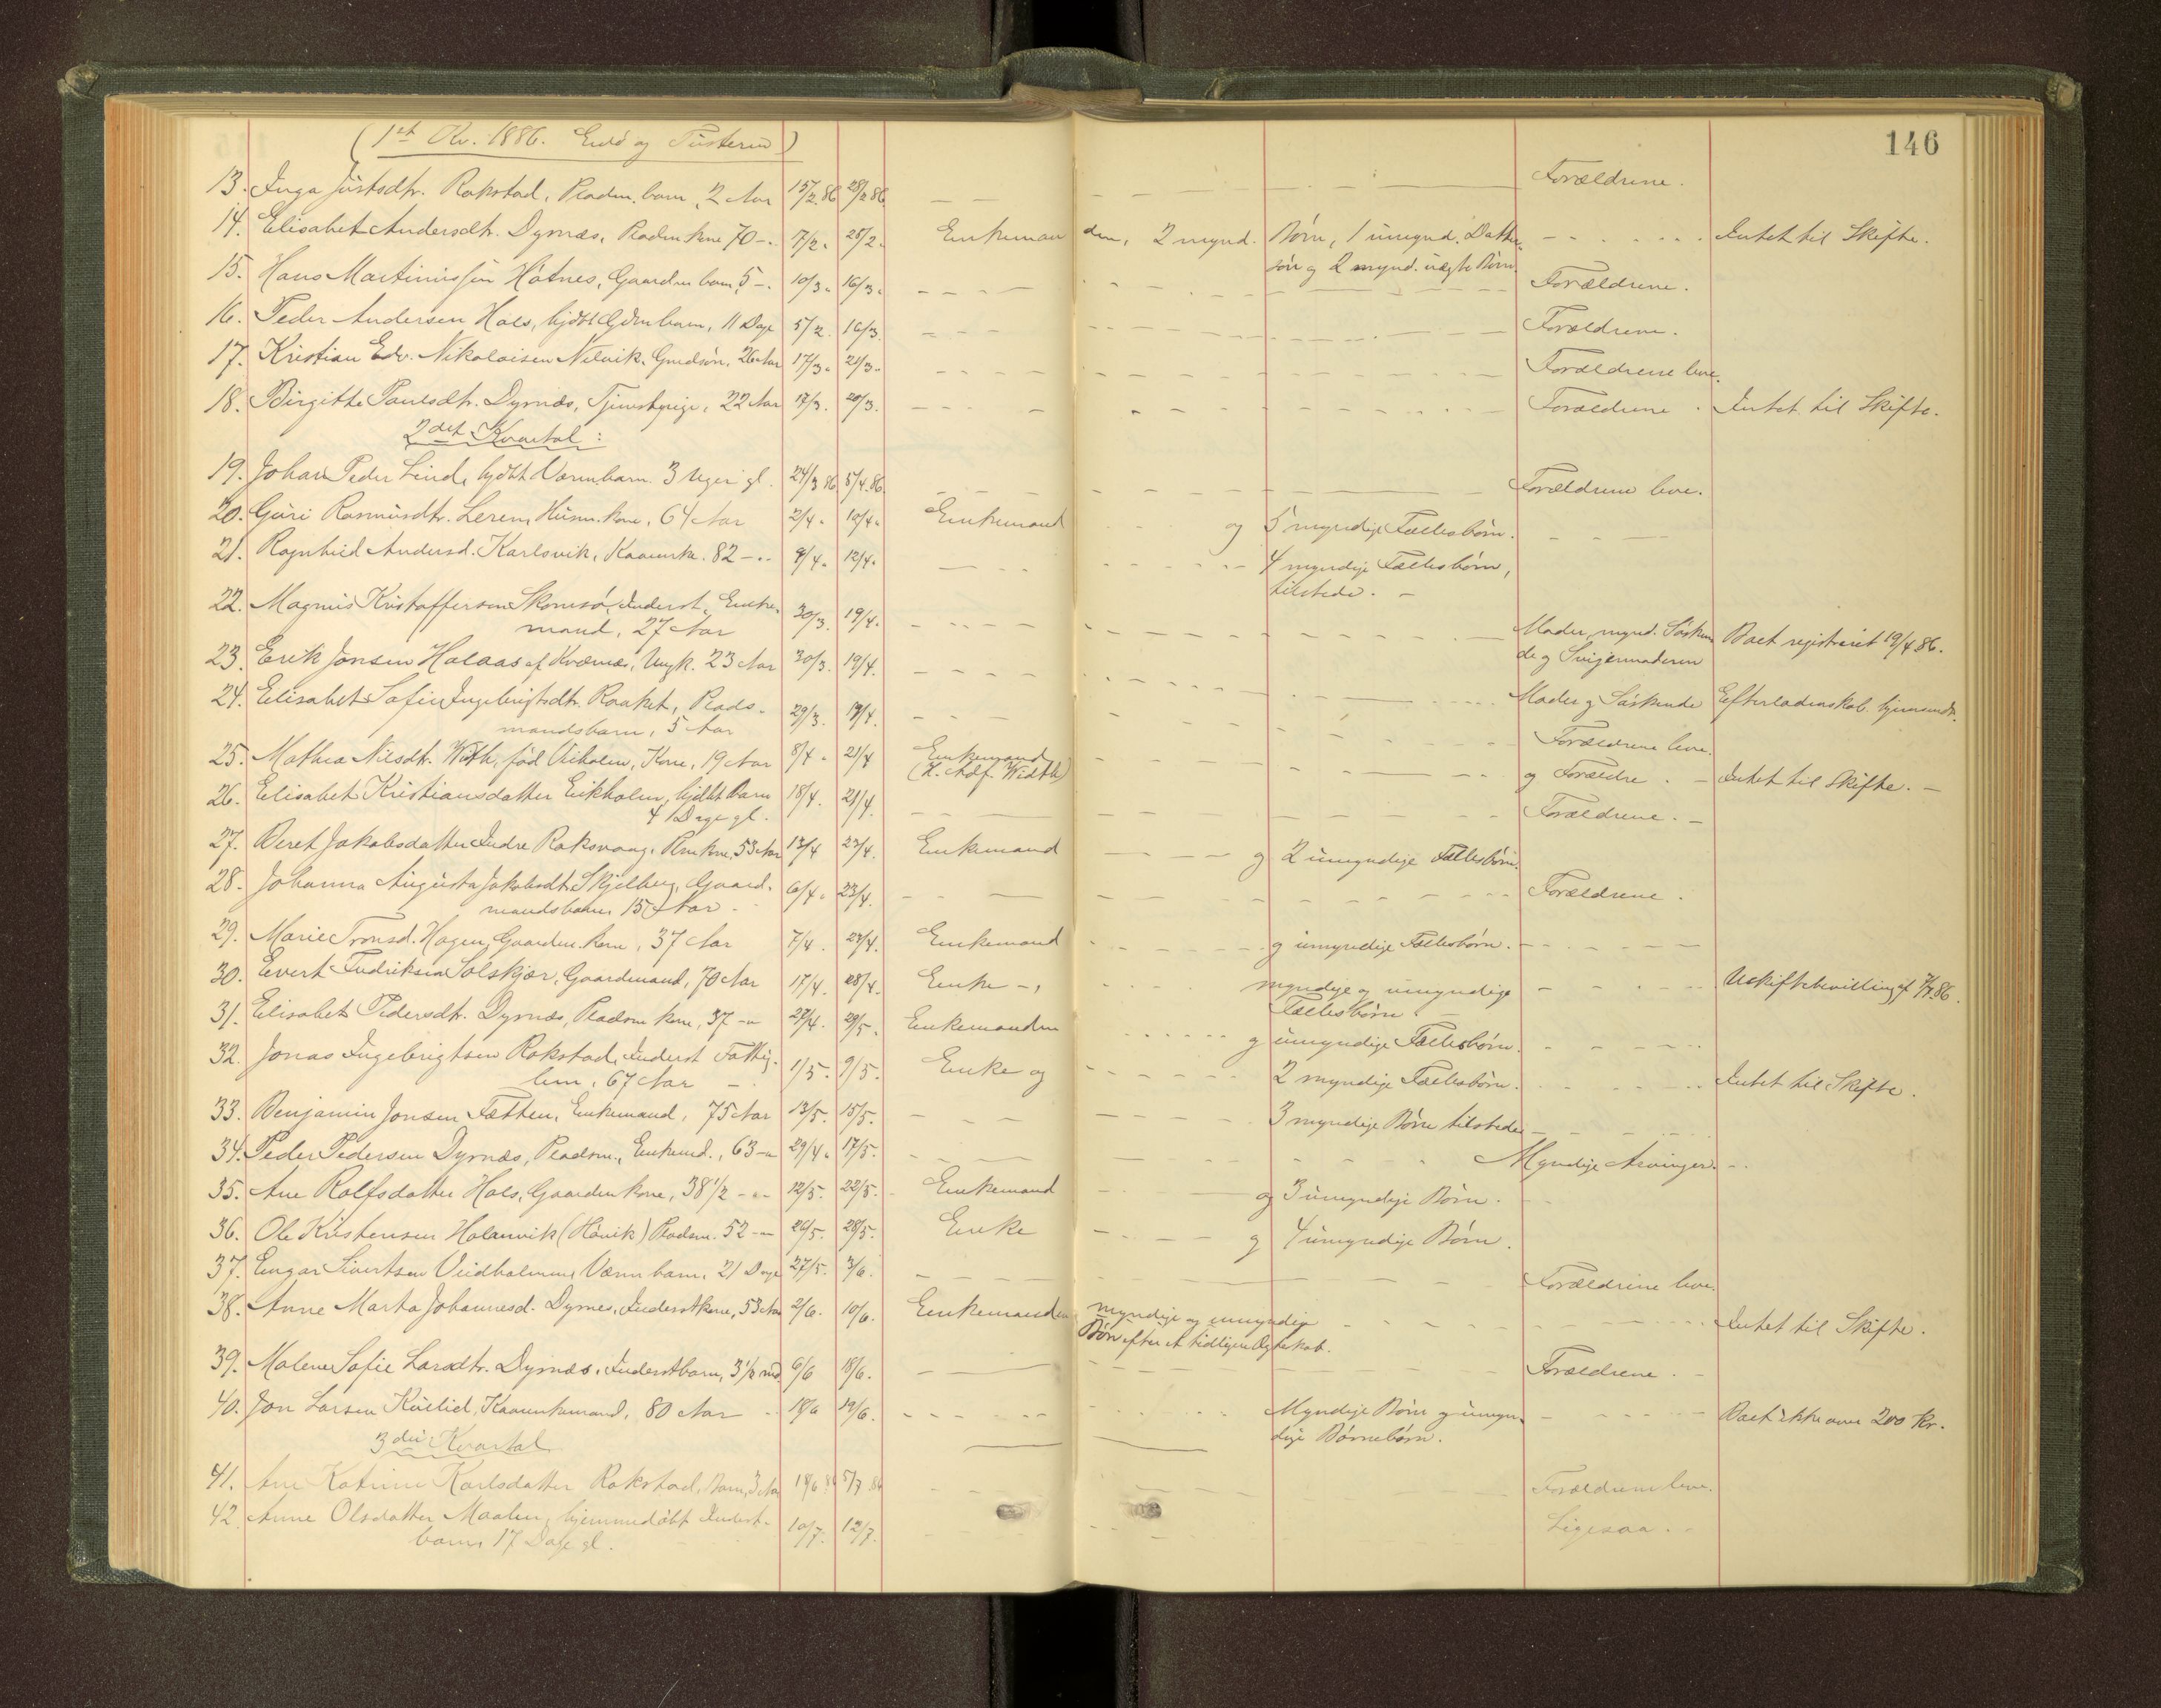 146
(1ste Kv. 1886. Endö og Tusteren)
13. Inga Justsdtr. Rokstad, Pladsm. barn, 2 Aar 15/2.86 28/2 86 Forældrene.
14. Elisabet Andersdtr. Dyrnæs, Pladsm kone 70 -. 7/2. 28/2. Enkemanden, 2 mynd. Børn, 1 umynd. Datter- Intet til Skifte.
søn og 2 mynd. uægte Børn
15. Hans Martinussøn Hatnes, Gaardm barn, 5 -. 10/3. 16/3. Forældrene.
16. Peder Andersen Hals, hjdbt Gdm barn, 11 Dage 5/2. 16/3. Forældrene.
17. Kristian Edv. Nikolaisen Nelvik, Gmdsøn, 26 Aar 17/3. 21/3. Forældrene leve.
18. Birgitte Paulsdtr. Dyrnæs, Tjenestepige, 22 Aar 17/3. 20/3. Forældrene. Intet til Skifte.
2det Kvartal:
19. Johan Peder Lind, hjdbt Værmbarn. 3 Uger gl. 24/3 86 5/4.86 Forældrene leve.
20. Guri Rasmusdtr. Lerem, Husm. kone, 64 Aar 2/4. 10/4. Enkemand og 5 myndige Fællesbørn.
21. Ragnhild Andersd. Karlsvik, Kaarenke. 82 - 9/4. 12/4. 4 myndige Fællesbørn,
tilstede. -
22. Magnus Kristoffersen Skomsø, Inderst, Enke- 30/3. 19/4. Moder, mynd. Søsken- Boet registreret 19/4 86.
mand, 27 Aar de og Svigermoderen
23. Erik Jonsen Halaas af Kvernæs, Ungk. 23 Aar 30/3. 19/4. Moder og Søskende Efterladenskab hjemsendt.
24. Elisabet Sofie Ingebrigtsdtr. Raaket, Plads- 29/3. 19/4. Forældrene leve.
mandsbarn, 5 Aar
25. Mathea Nilsdtr. With, fød Vikholm, Kone, 19 Aar 8/4. 21/4 Enkemand og Forældre. - Intet til Skifte. -
(H. Adf. Width)
26. Elisabet Kristiansdatter Eikholm, hjdbt Barn 18/4. 21/4. Forældrene. -
4 Dage gl.
27. Beret Jakobsdatter Indre Roksvaag, Plmkone, 53 Aar 13/4 23/4. Enkemand og 2 umyndige Fællesbørn.
28. Johanna Augusta Jakobsdtr. Skjelberg, Gaard- 6/4. 23/4. Forældrene.
mandsbarn, 15 Aar.
29. Marie Tronsd. Hagen, Gaardm. kone, 37 Aar 7/4. 23/4. Enkemand og umyndige Fællesbørn.
30. Evert Fredriksen Solskjær, Gaardmand, 70 Aar 17/4. 28/4. Enke -, myndige og umyndige Uskiftebevilling af 7/7.86.
Fællesbørn -
31. Elisabet Pedersdtr. Dyrnæs, Pladsm kone, 37 -" 27/4. 29/5. Enkemanden og umyndige Fællesbørn.
32. Jonas Ingebrigtsen Rokstad, Inderst Fattig- 1/5. 9/5. Enke og 2 myndige Fællesbørn. Intet til Skifte.
lem, 67 Aar -
33. Benjamin Jonsen Fætten, Enkemand, 75 Aar 13/5. 15/5. 3 myndige Børn tilstede
34. Peder Pedersen Dyrnæs, Pladsm., Enkemd., 63 -" 29/4. 17/5. Myndige Arvinger.
35. Ane Rolfsdatter Hals, Gaardm kone, 38 1/2 -"- 12/5. 22/5. Enkemand og 3 umyndige Børn.
36. Ole Kristensen Holanvik (Håvik) Pladsm. 52 -" 26/5. 28/5. Enke og 4 umyndige Børn.
37. Engar Sivertsen Veidholmen, Værm barn, 21 Dage 27/5. 3/6. Forældrene leve.
38. Anne Marta Johannesd. Dyrnes, Inderstkone, 53 Aar 2/6. 10/6. Enkemanden myndige og umyndige Intet til Skifte.
Børn efter et tidligere Ægteskab.
39. Malene Sofie Larsdtr. Dyrnæs, Inderstbarn, 3 1/2 md. 6/6 18/6. Forældrene.
40. Jon Larsen Kuelid, Kaarenkemand, 80 Aar 18/6 19/6. Myndige Børn og umyn- Boet ikke over 200 Kr.
dige Børnebørn.
3die Kvartal
41. Ane Katrine Karlsdatter Rokstad, Barn, 3 Aar 18/6 86 5/7 86 Forældrene leve.
42. Anne Olsdatter Maalen, hjemmedøbt Inderst- 10/7. 12/7. Ligesaa.
barn, 17 Dage gl.